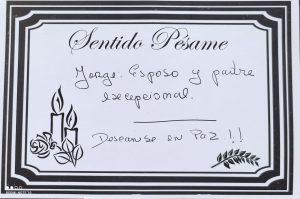 Sentido Pésame
Jorge. Esposo y padre
excepcional.
Descanse en Paz !!